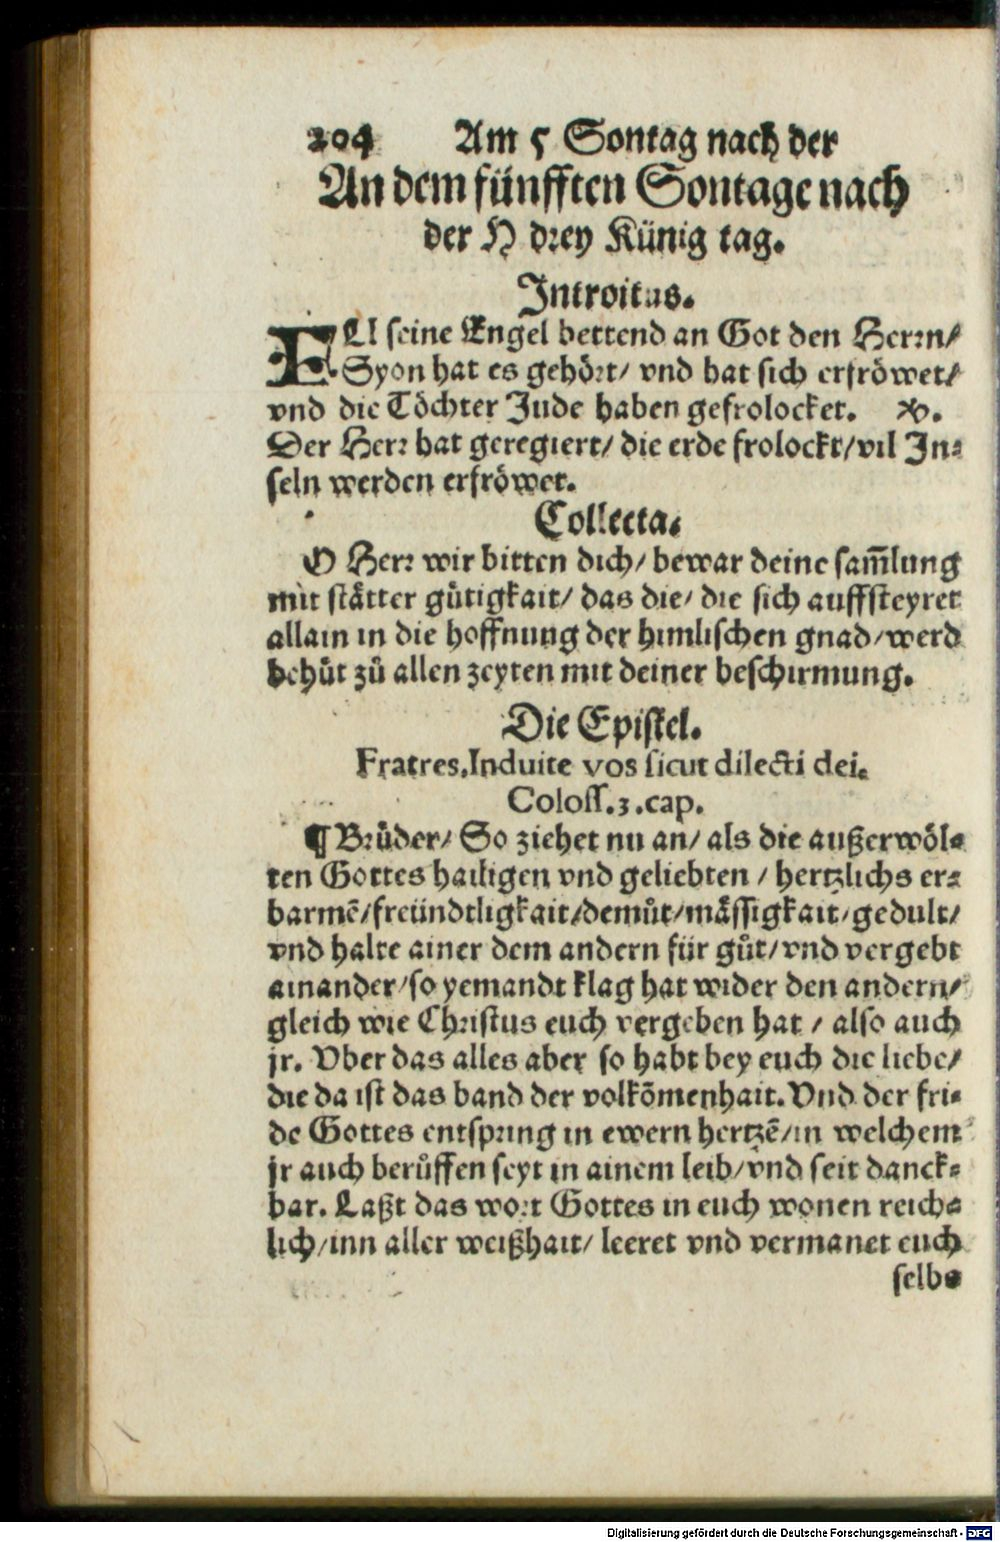 204 Am 5 Sontag nach der
An dem fünfften Sontage nach
der H drey Künig tag.
Introitus.
EU seine Engel bettend an Got den Herrn/
Syon hat es gehört/ vnd hat sich erfröwet/
vnd die Töchter Jude haben gefrolocket. ℣.
Der Herr hat geregiert/ die erde frolockt/ vil In⸗
seln werden erfröwet.
Collecta.
O Herr wir bitten dich/ bewar deine sam̃lung
mit stätter gůtigkait/ das die/ die sich auffsteyret
allain in die hoffnung der himlischen gnad/ werd
behůt zů allen zeyten mit deiner beschirmung.
Die Epistel.
Fratres. Induite vos sicut dilecti dei.
Coloss. 3. cap.
¶ Brůder/ So ziehet nu an/ als die außerwöl⸗
ten Gottes hailigen vnd geliebten / hertzlichs er⸗
barmẽ/ freündtligkait/ demůt/ mässigkait/ gedult/
vnd halte ainer dem andern für gůt/ vnd vergebt
ainander/ so yemandt klag hat wider den andern/
gleich wie Christus euch vergeben hat / also auch
jr. Vber das alles aber so habt bey euch die liebe/
die da ist das band der volkõmenhait. Vnd der fri⸗
de Gottes entspring in ewern hertzẽ/ in welchem
jr auch berůffen seyt in ainem leib/ vnd seit danck⸗
bar. Laßt das wort Gottes in euch wonen reich⸗
lich/ inn aller weißhait/ leeret vnd vermanet euch
selb⸗
Digitalisierung gefördert durch die Deutsche Forschungsgemeinschaft - DFG